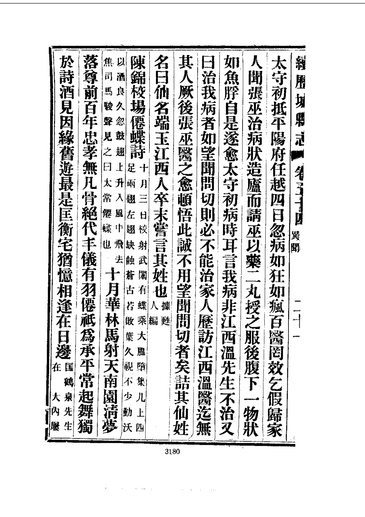 續歷城縣志 卷五十四 異聞 二十一
太守初抵平陽府任越四日忽病如狂如瘋百醫罔效乞假歸家
人聞張巫治病狀造廬而請巫以藥二丸授之服後腹下一物狀
如魚脬自是遂愈太守初病時耳言我病非江西溫先生不治又
曰治我病者如望聞問切則必不能治家人歷訪江西溫醫迄無
其人厥後張巫醫之愈頓悟此誠不用望聞問切者矣詰其仙姓
名曰仙名端玉江西人卒未嘗言其姓也
陳錦校場僊蝶詩 十月三日校射武闈有蝶乘大風墮案几上四
足兩翅左翅缺蝕蒼古若敗葉久視不少動沃
以酒良久忽鼓翅上升入風中飛去
焦司馬駿聲見之曰太常僊蝶也 十月華林馬射天南園淸夢
落尊前百年忠孝無凡骨絕代丰儀有羽僊祇爲承平常起舞獨
於詩酒見因緣舊遊最是匡衡宅猶憶相逢在日邊 國鶴泉先生
在大內
3180